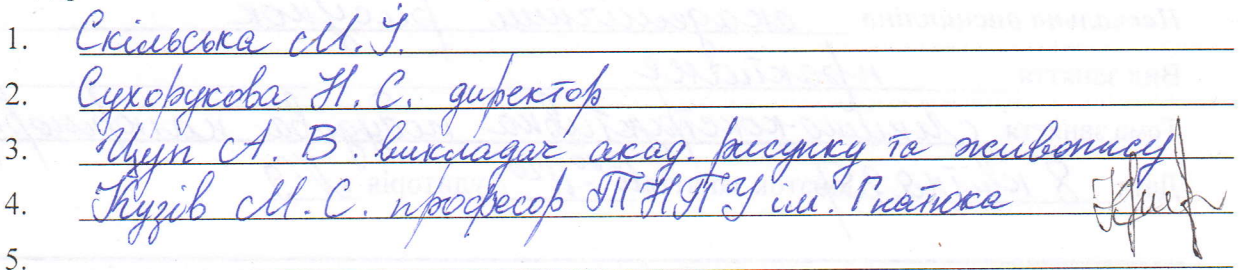 1. Скільська М.Й.
2. Сухорукова Н.С. директор
3. Цуп А.В. викладач акад. рисунку та живопису
4. Кузів М.С. професор ТНПУ ім. Гнатюка
5.